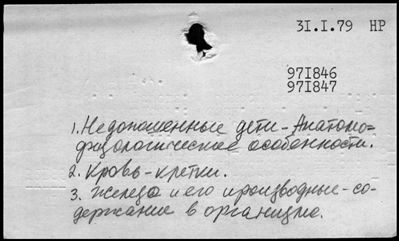 3I.I.79 НР
97I846
97I847
1. Недоношенные дети - Анатомо-
физиологические особенности.
2. Кровь - клетки.
3. Железо и его производные - со-
держание в организме.